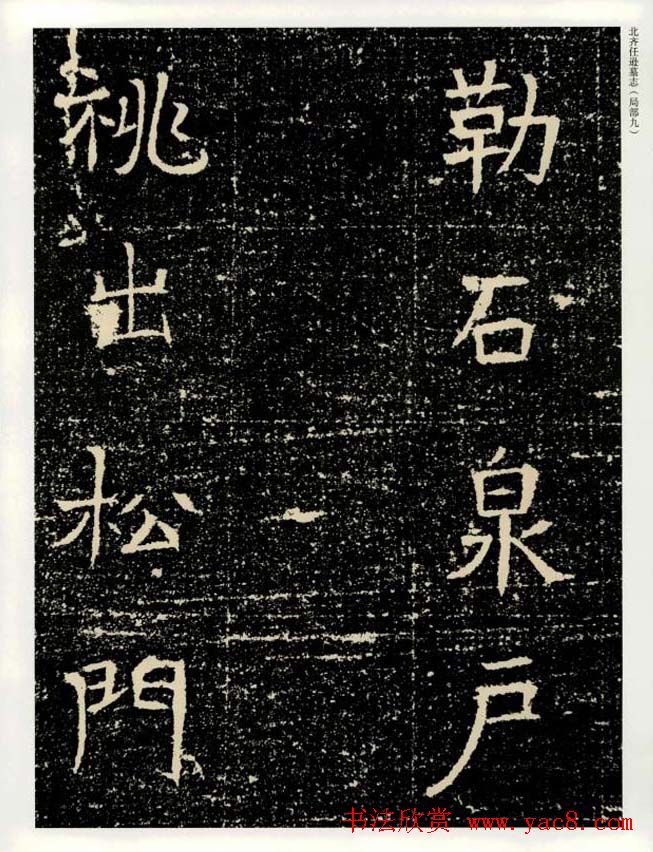 北齐任逊墓志（局部九）
勒石泉戶
祧出松門
书法欣赏 www.yac8.com